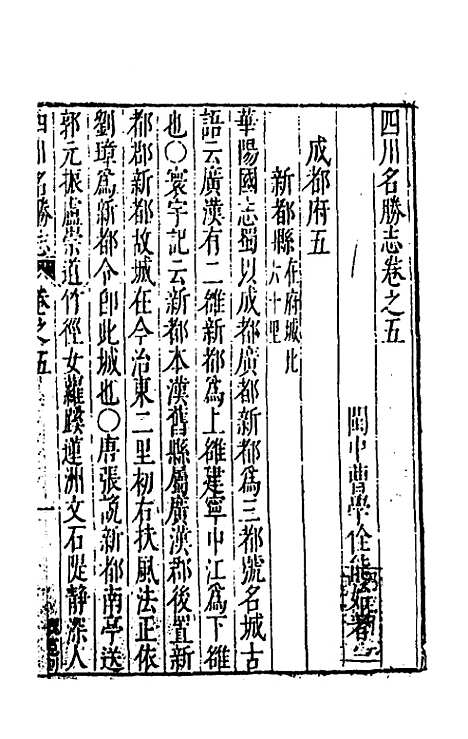 四川名勝志卷之五
閩中曹學佺能始著
成都府五
新都縣在府城北六十里
華陽國志蜀以成都廣都新都為三都號名城古
語云廣漢有二雒新都為上雒建寧中江為下雒
也○寰宇記云新都本漢舊縣屬廣漢郡後置新
都郡新都故城在今治東二里初右扶風法正依
劉璋為新都令即此城也○唐張說新都南亭送
郭元振盧崇道竹徑女蘿蹊蓮洲文石隄靜深人
四川名勝志 卷之五 一